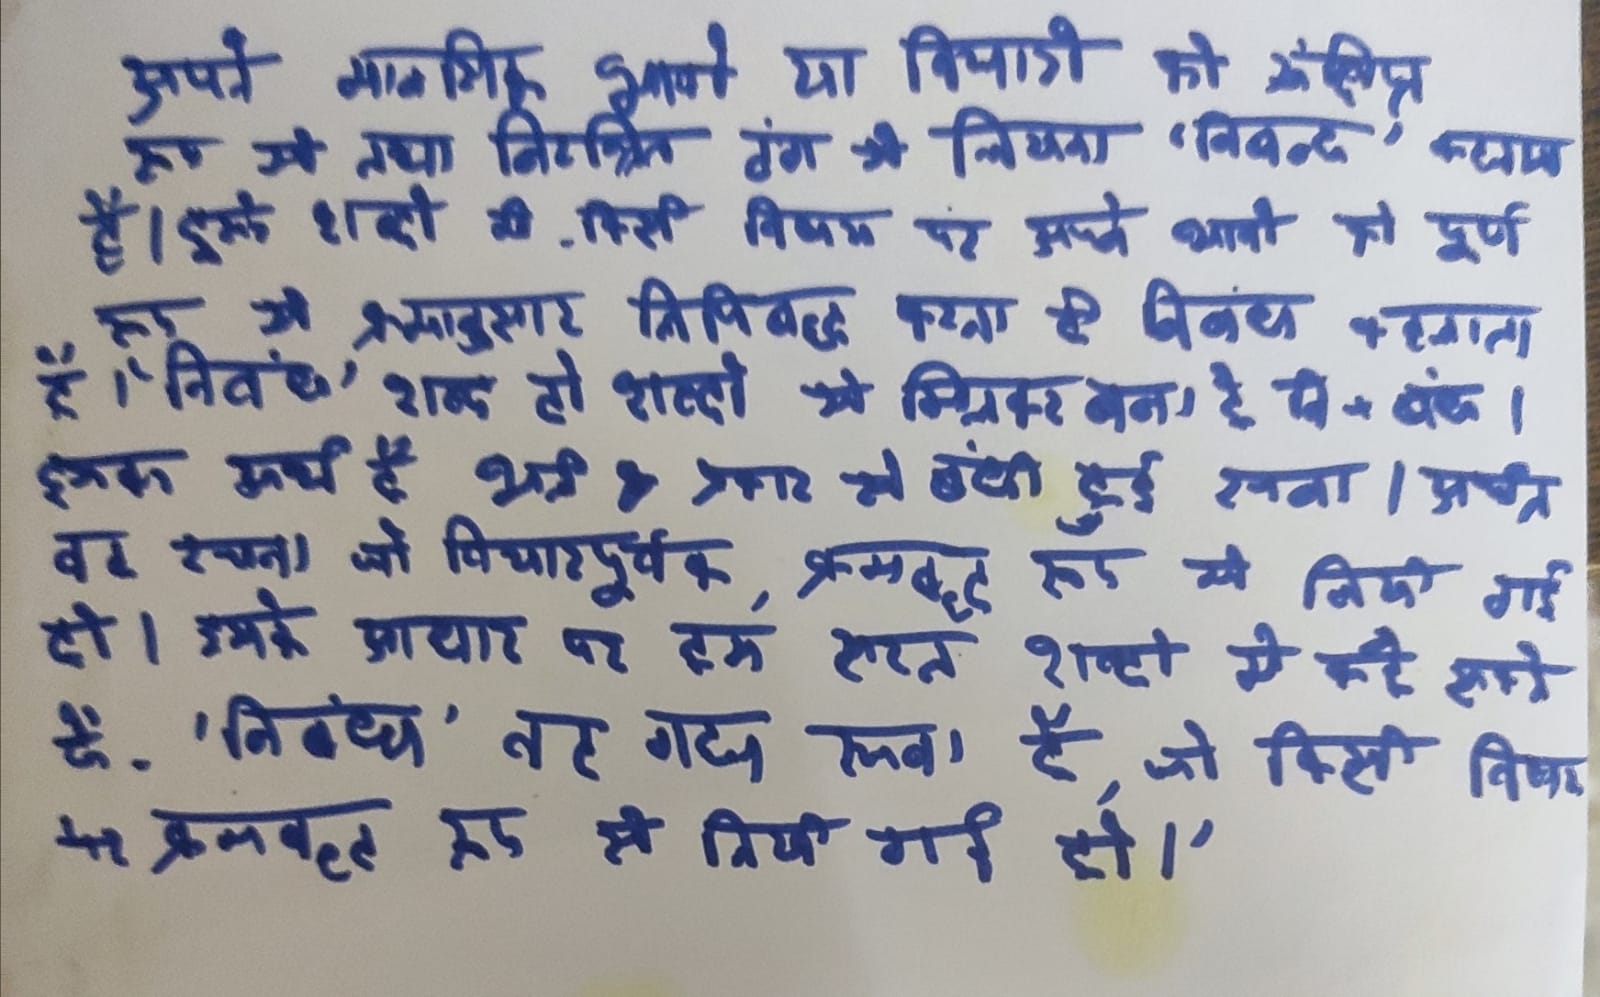 अपने मानसिक भावों या विचारों को संक्षिप्त
रूप से तथा नियंत्रित ढंग से लिखना 'निबन्ध' कहलाता
है। दूसरे शब्दों में किसी विषय पर अपने भावों को पूर्ण
रूप से क्रमानुसार लिपिबद्ध करना ही निबंध कहलाता
है। 'निबंध' शब्द दो शब्दों से मिलकर बना है नि + बंध।
इसका अर्थ है भली प्रकार से बंधी हुई रचना। अर्थात
वह रचना जो विचारपूर्वक, क्रमबद्ध रूप से लिखी गई
हो। इसके आधार पर हम सरल शब्दों में कह सकते
हैं. 'निबंध' वह गद्य रचना है, जो किसी विषय
पर क्रमबद्ध रूप से लिखी गई हो।'